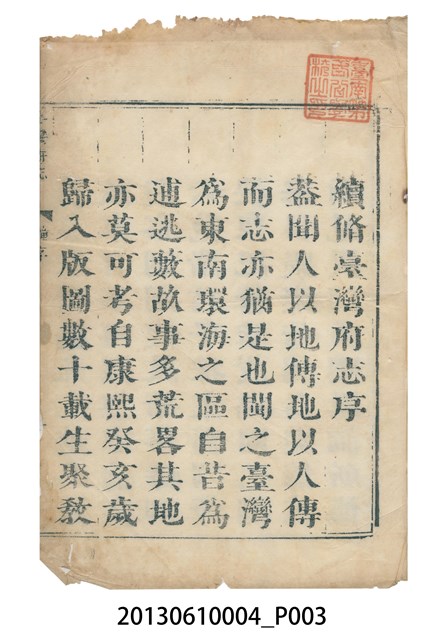 續脩臺灣府志序
葢聞人以地傳地以人傳
而志亦猶是也閩之臺灣
爲東南環海之區自昔爲
逋逃藪故事多荒畧其地
亦莫可考自康熙癸亥歲
歸入版圖數十載生聚敎
20130610004_P003